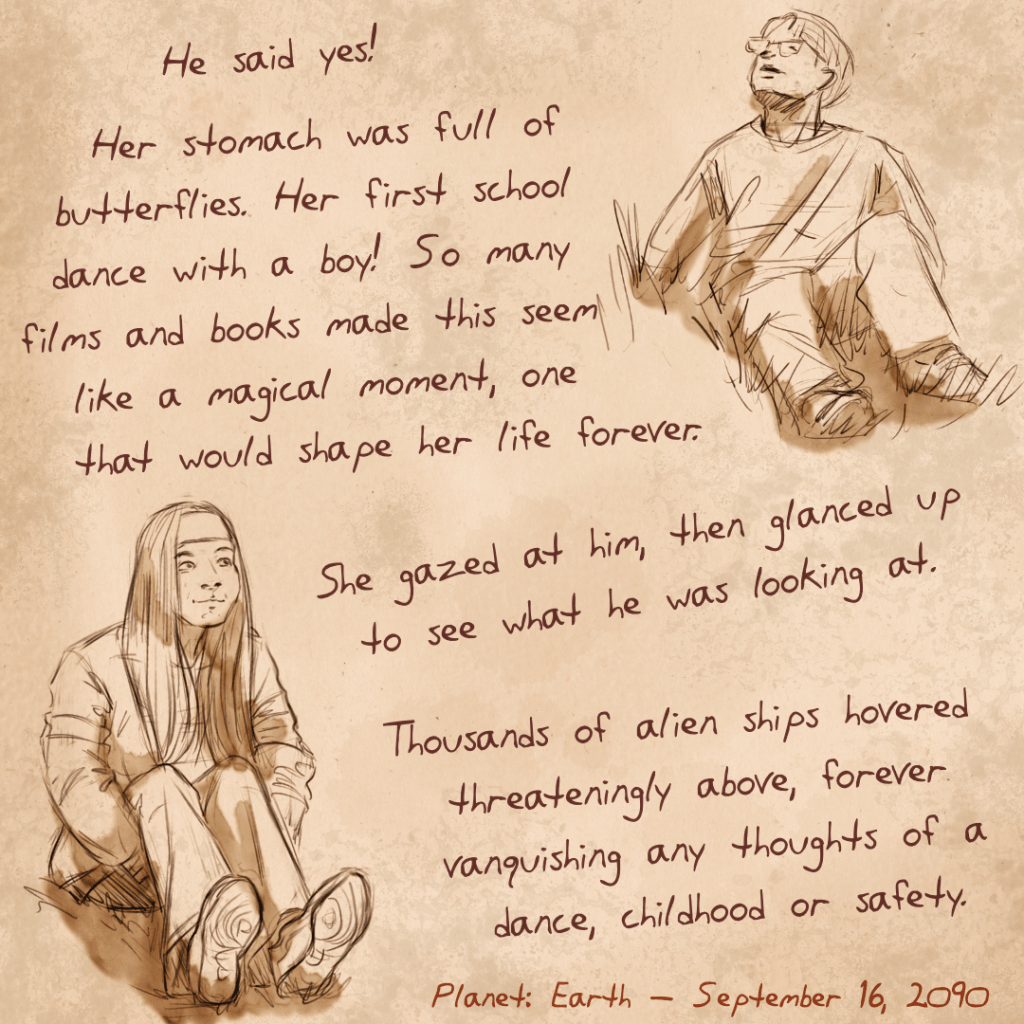 He said yes!
Her stomach was full of
butterflies. Her first school
dance with a boy! So many
films and books made this seem
like a magical moment, one
that would shape her life forever.
She gazed at him, then glanced up
to see what he was looking at.
Thousands of alien ships hovered
threateningly above, forever
vanquishing any thoughts of a
dance, childhood or safety.
Planet: Earth – September 16, 2090